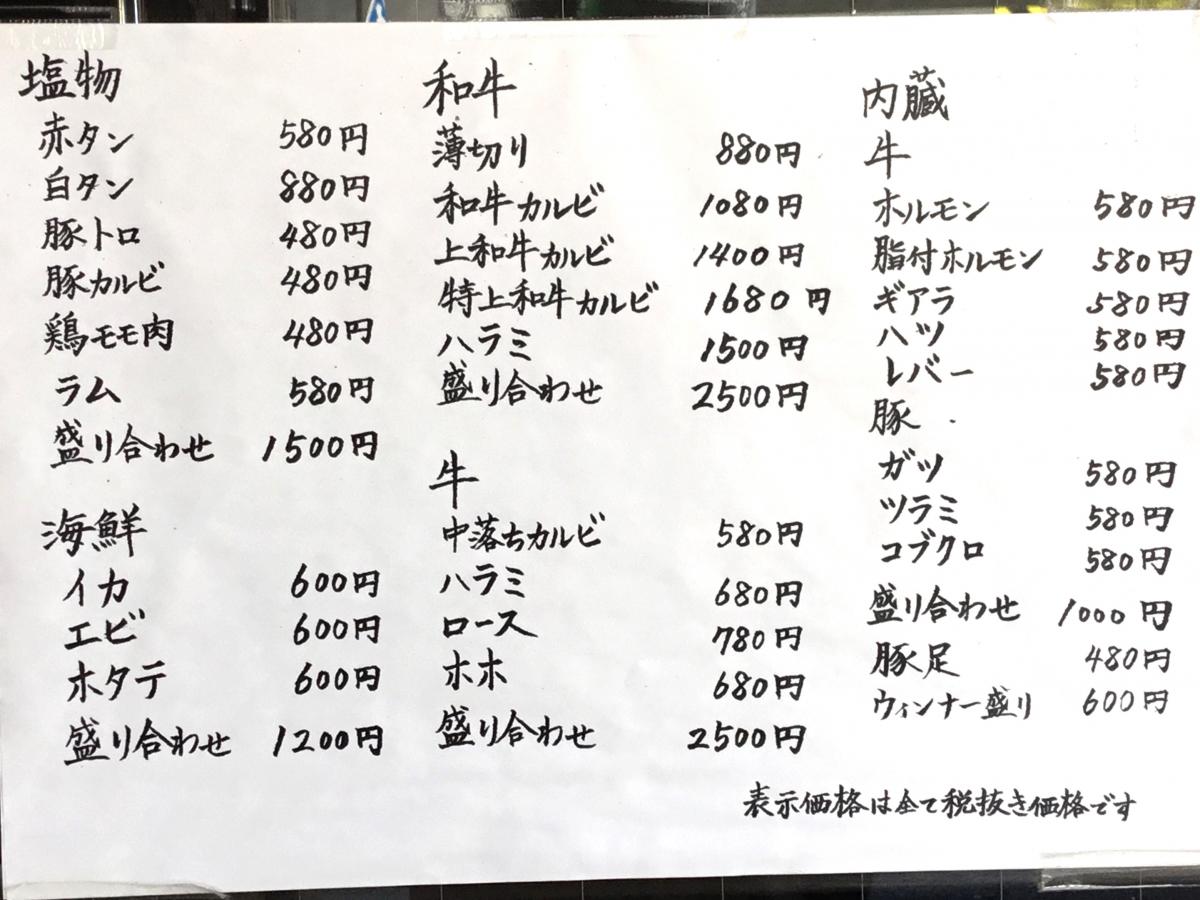 塩物
赤タン 580円
白タン 880円
豚トロ 480円
豚カルビ 480円
鶏モモ肉 480円
ラム 580円
盛り合わせ 1500円
海鮮
イカ 600円
エビ 600円
ホタテ 600円
盛り合わせ 1200円
和牛
薄切り 880円
和牛カルビ 1080円
上和牛カルビ 1400円
特上和牛カルビ 1680円
ハラミ 1500円
盛り合わせ 2500円
牛
中落ちカルビ 580円
ハラミ 680円
ロース 780円
ホホ 680円
盛り合わせ 2500円
内臓
牛
ホルモン 580円
脂付ホルモン 580円
ギアラ 580円
ハツ 580円
レバー 580円
豚
ガツ 580円
ツラミ 580円
コブクロ 580円
盛り合わせ 1000円
豚足 480円
ウィンナー盛り 600円
表示価格は全て税抜き価格です